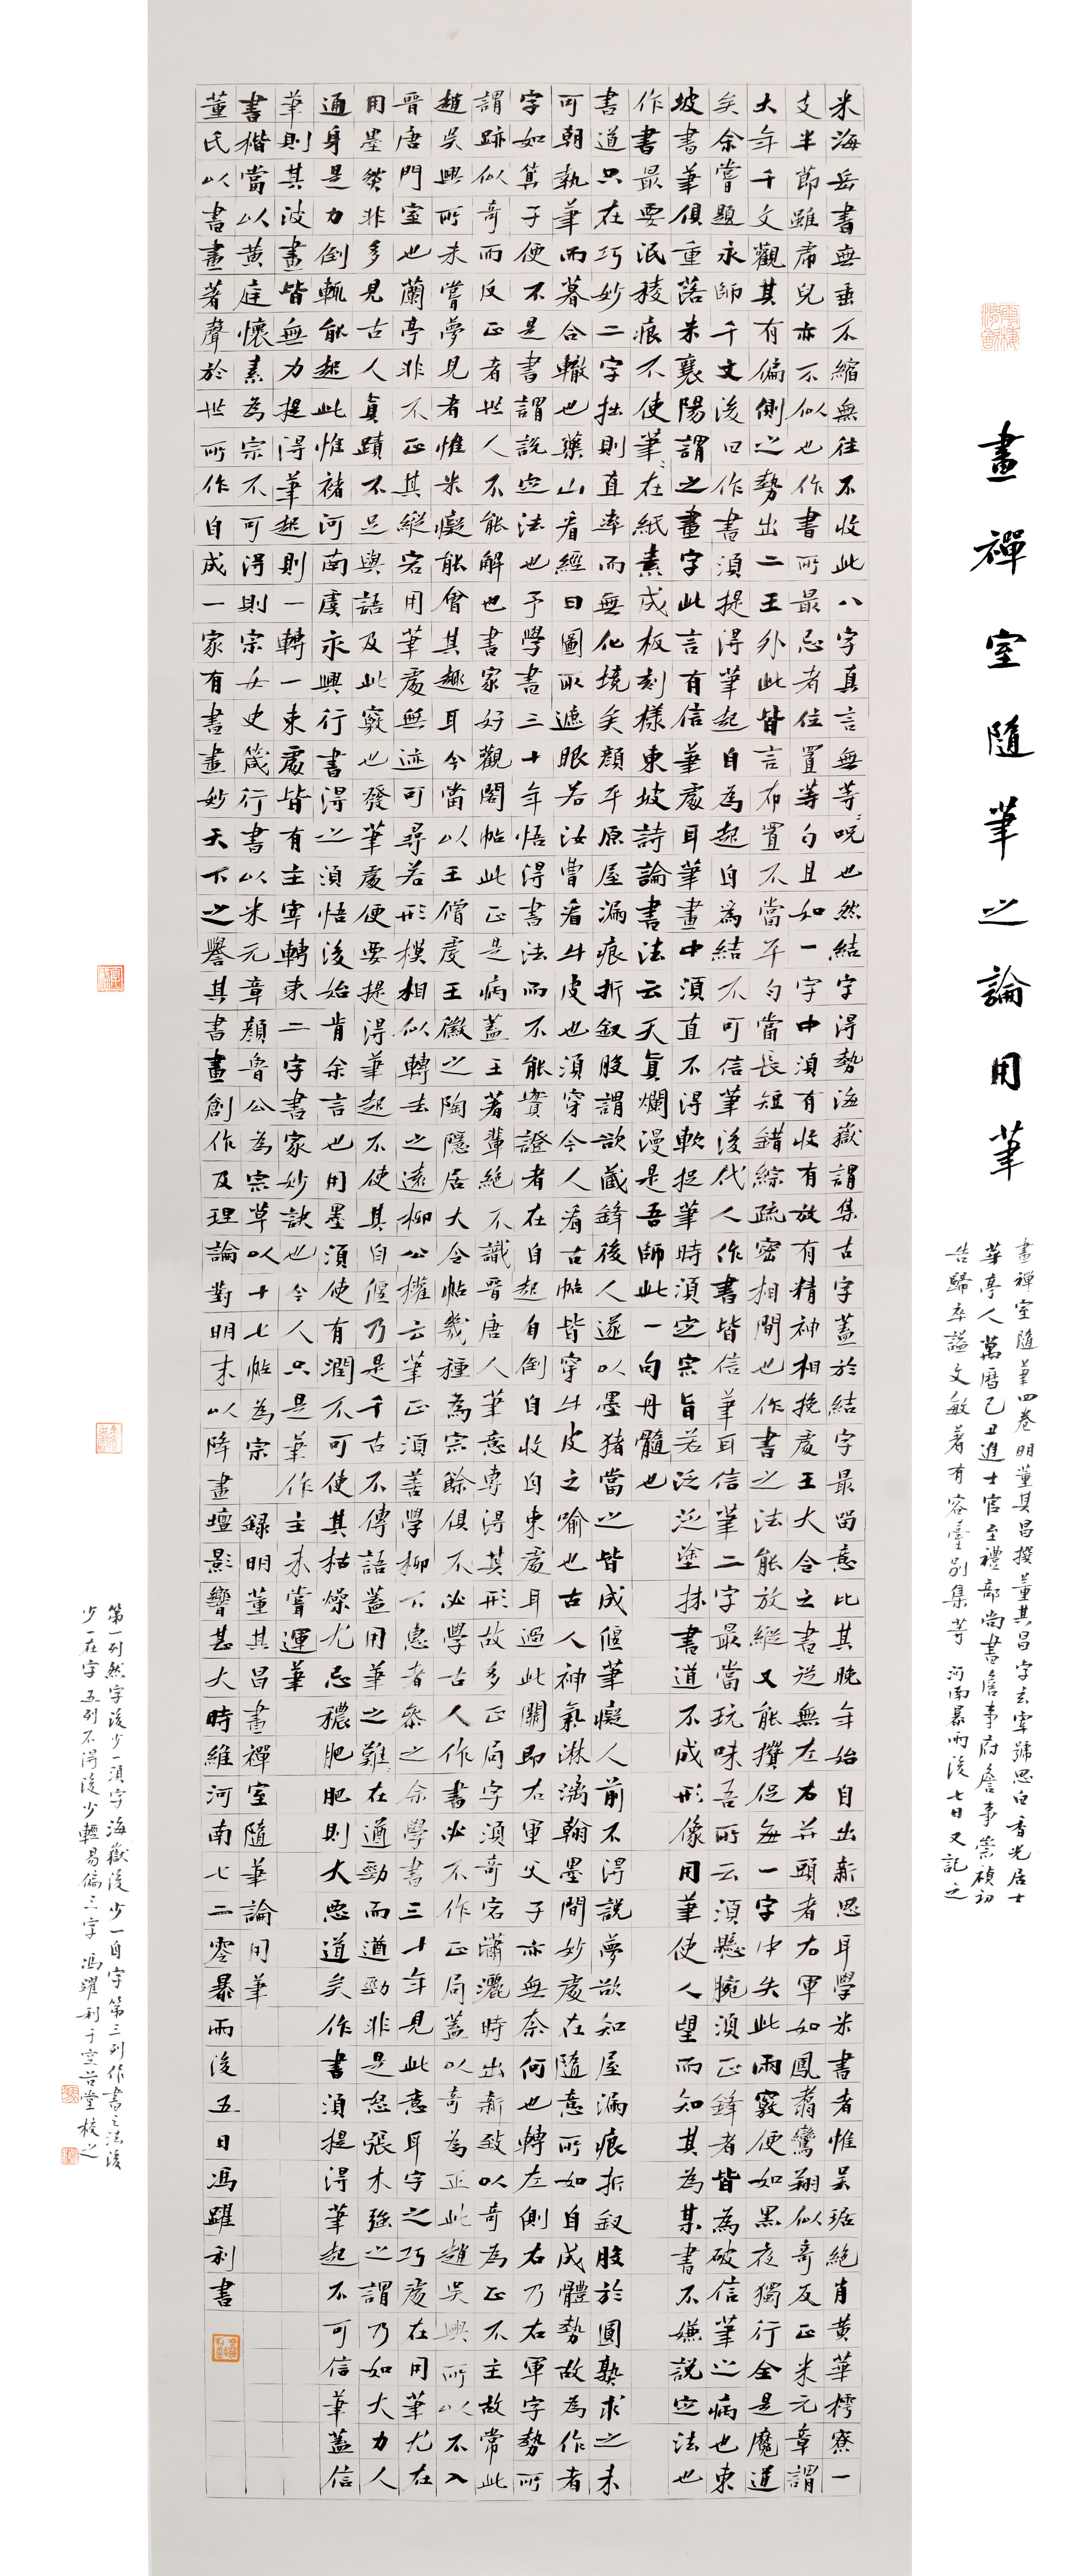 畫禪室隨筆之論用筆
畫禪室隨筆四卷明董其昌撰董其昌字玄宰號思白香光居士
華亭人萬曆己丑進士官至禮部尚書詹事府詹事崇禎初
告歸卒謚文敏著有容臺別集等 河南暴雨後七日又記之
米海岳書無垂不縮無往不收此八字真言無等〻咒也然結字得勢海嶽謂集古字蓋於結字最留意比其晚年始自出新思耳學米書者惟吳琚絕肖黃華樗寮一
支半節雖虎兒亦不似也作書所最忌者位置等勻且如一字中須有收有放有精神相挽處王大令之書從無左右並頭者右軍如鳳翥鸞翔似奇反正米元章謂
大年千文觀其有偏側之勢出二王外此皆言布置不當平勻當長短錯綜疏密相間也作書之法能放縱又能攢促每一字中失此兩竅便如黑夜獨行全是魔道
矣余嘗題永師千文後曰作書須提得筆起自為起自為結不可信筆後代人作書皆信筆耳信筆二字最當玩味吾所云須懸腕須正鋒者皆為破信筆之病也東
坡書筆俱重落米襄陽謂之畫字此言有信筆處耳筆畫中須直不得軟捉筆時須定宗旨若泛泛塗抹書道不成形像用筆使人望而知其為某書不嫌說定法也
作書最要泯稜痕不使筆〻在紙素成板刻樣東坡詩論書法云天真爛漫是吾師此一句丹髓也
書道只在巧妙二字拙則直率而無化境矣顏平原屋漏痕折釵股謂欲藏鋒後人遂以墨猪當之皆成偃筆癡人前不得說夢欲知屋漏痕折釵股於圓熟求之未
可朝執筆而暮合轍也藥山看經曰圖取遮眼若汝曹看牛皮也須穿今人看古帖皆穿牛皮之喻也古人神氣淋漓翰墨間妙處在隨意所如自成體勢故為作者
字如算子便不是書謂說定法也予學書三十年悟得書法而不能實證者在自起自倒自收自束處耳過此關即右軍父子亦無奈何也轉左側右乃右軍字勢所
謂跡似奇而反正者世人不能解也書家好觀閣帖此正是病蓋王著輩絕不識晉唐人筆意專得其形故多正局字須奇宕瀟灑時出新致以奇為正不主故常此
趙吳興所未嘗夢見者惟米癡能會其趣耳今當以王僧虔王徽之陶隱居大令帖幾種為宗餘俱不必學古人作書必不作正局蓋以奇為正此趙吳興所以不入
晉唐門室也蘭亭非不正其縱宕用筆處無迹可尋若形模相似轉去之遠柳公權云筆正須善學柳下惠者參之余學書三十年見此意耳字之巧處在用筆尤在
用墨然非多見古人真蹟不足與語及此竅也發筆處便要提得筆起不使其自偃乃是千古不傳語蓋用筆之難在遒勁而遒勁非是怒張木強之謂乃如大力人
通身是力倒輒能起此惟褚河南虞永興行書得之須悟後始肯余言也用墨須使有潤不可使其枯燥尤忌穠肥肥則大惡道矣作書須提得筆起不可信筆蓋信
筆則其波畫皆無力提得筆起則一轉一束處皆有主宰轉束二字書家妙訣也今人只是筆作主未嘗運筆
書楷當以黃庭懷素為宗不可得則宗女史箴行書以米元章顏魯公為宗草以十七帖為宗 錄明董其昌畫禪室隨筆論用筆
董氏以書畫著聲於世所作自成一家有書畫妙天下之譽其書畫創作及理論對明末以降畫壇影響甚大時維河南七二零暴雨後五日馮躍利書
第一列然字後少一須字海嶽後少一自字第三列作書之法後
少一在字五列不得後少輕易偏三字 馮躍利于空谷堂校之